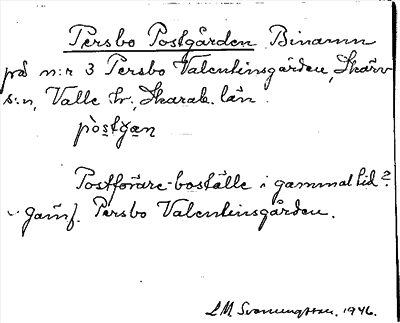 Persbo Postgården Binamn
på n:r 3 Persbo Valentinsgården, Skärv
s:n, Valle hr, Skarab. län.
pòstgan
Postförare-boställe i gammal tid?
jämf. Persbo Valentinsgården.
LM Svanungsson. 1946.